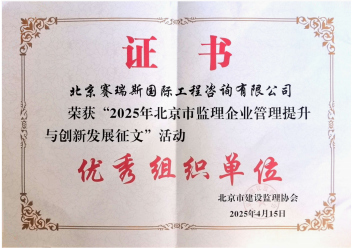 证书
北京赛瑞斯国际工程咨询有限公司
荣获“2025年北京市监理企业管理提升
与创新发展征文”活动
优秀组织单位
北京市建设监理协会
2025年4月15日